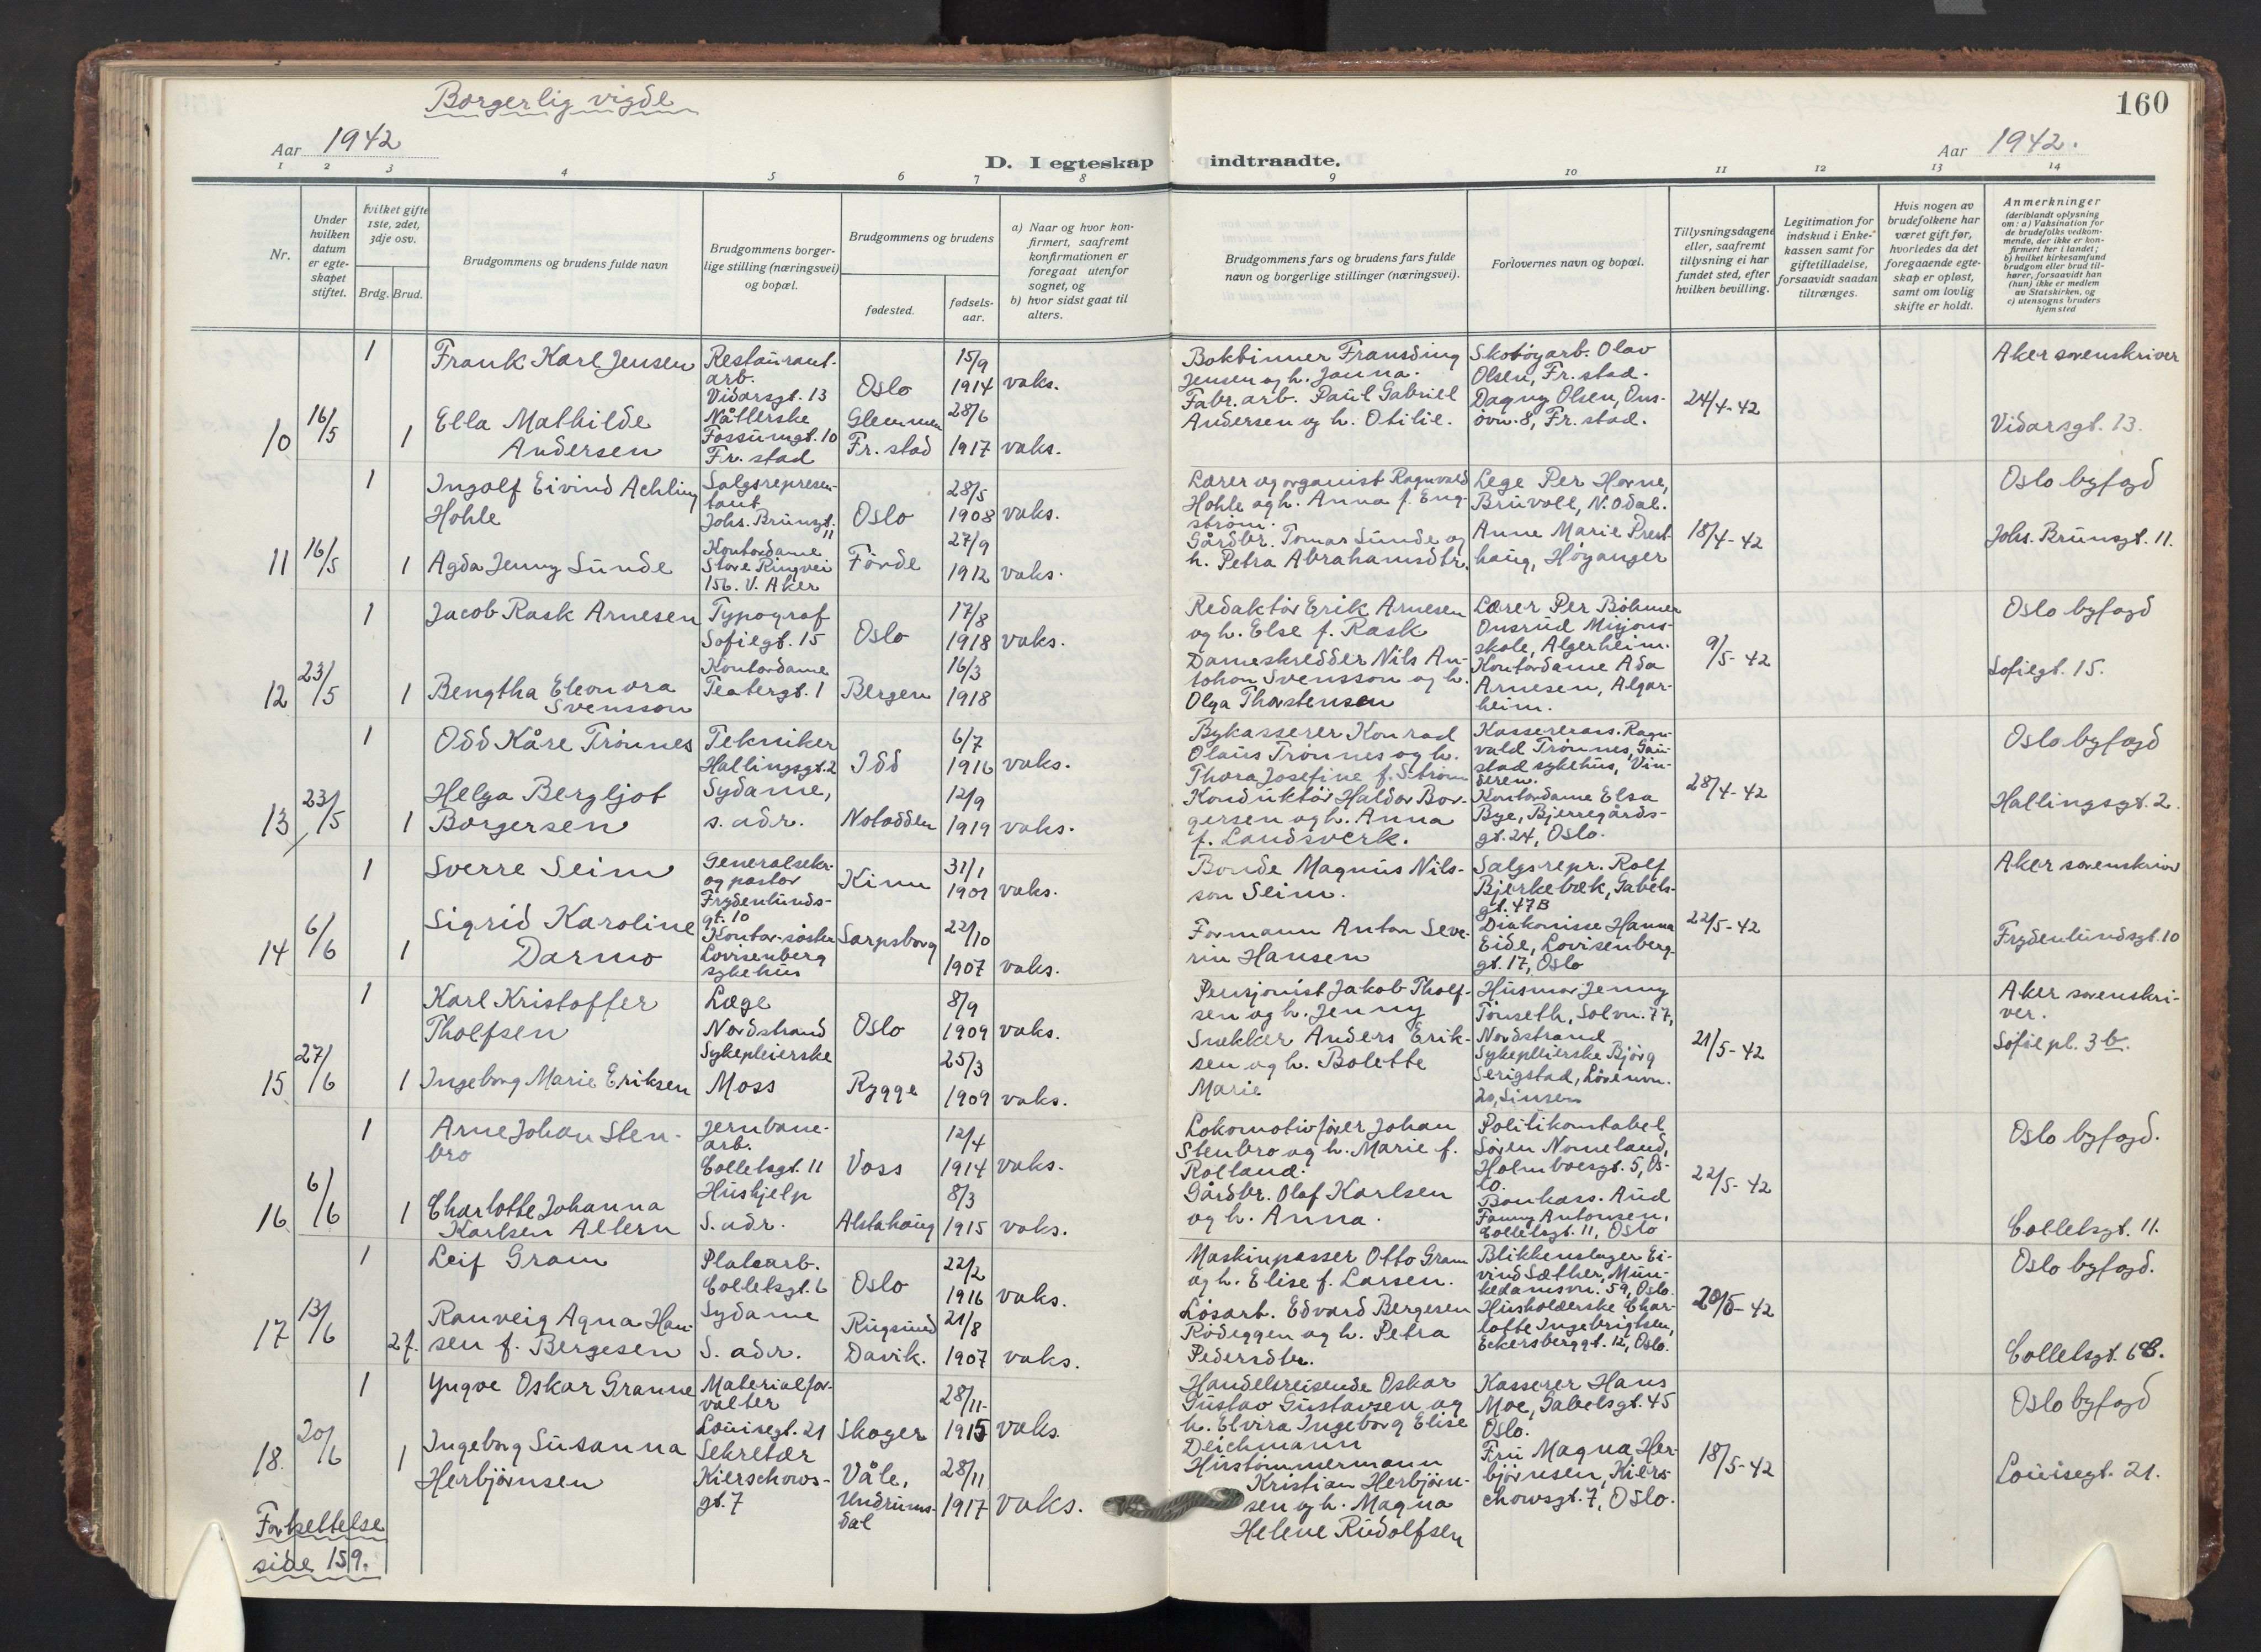 Borgerlig vigde
160
Aar 1942
Aar 1942.
D. I egteskap indtraadte.
1 2 3 4 5 6 7 8 9 10 11 12 13 14
Nr.
Under hvilken datum er egteskapet stiftet.
hvilket gifte 1ste, 2det, 3dje osv.
Brdg. Brud.
Brudgommens og brudens fulde navn
Brudgommens borgerlige stilling (næringsvei) og bopæl.
Brudgommens og brudens
fødested.
fødselsaar.
a) Naar og hvor konfirmert, saafremt konfirmationen er foregaat utenfor sognet, og
b) hvor sidst gaat til alters.
Brudgommens fars og brudens fars fulde navn og borgerlige stillinger (næringsvei).
Forlovernes navn og bopæl.
Tillysningsdagene eller, saafremt tillysning ei har fundet sted, efter hvilken bevilling.
Legitimation for indskud i Enkekassen samt for giftetilladelse, forsaavidt saadan tiltrænges.
Hvis nogen av brudefolkene har været gift før, hvorledes da det foregaaende egteskap er opløst, samt om lovlig skifte er holdt.
Anmerkninger
(deriblandt oplysning om: a) Vaksination for de brudefolks vedkommende, der ikke er konfirmert her i landet; b) hvilket kirkesamfund brudgom eller brud tilhører, forsaavidt han (hun) ikke er medlem av Statskirken, og c) utensogns bruders hjemsted
10
16/5
1
Frank Karl Jensen
Restaurant-
arb.
Vidarsgt. 13
Oslo
15/9
1914
vaks.
Bokbinner Fransding
Jensen og h. Janna.
Skotøyarb. Olav
Olsen, Fr.stad.
24/4-42
Aker sorenskriver
1
Ella Mathilde
Andersen
Nåtlerske
Fossumgt. 10
Fr. stad
Glemmen
Fr. stad
28/6
1917
vaks.
Fabr. arb. Paul Gabriel
Andersen og h. Otilie.
Dagny Olsen, Ons-
øvn. 8, Fr. stad.
Vidarsgt. 13.
11
16/5
1
Ingolf Eivind Achling
Hohle
Salgsrepresen-
tant
Johs. Brunsgt.
11
Oslo
28/5
1908
vaks.
Lærer og organist Ragnvald
Hohle og h. Anna f. Eng-
strøm.
Lege Per Hovne,
Bruvoll, N. Odal.
18/4-42
Oslo byfogd
1
Agda Jenny Sunde
Kontordame
Store Ringvei
156. V. Aker
Førde
27/9
1912
vaks.
Gårdbr. Tomas Sunde og
h. Petra Abrahamsdtr.
Anne Marie Prest-
haug, Høyanger
Johs. Brunsgt. 11.
12
23/5
1
Jacob Rask Arnesen
Typograf
Sofiegt. 15
Oslo
17/8
1918
vaks.
Redaktør Erik Arnesen
og h. Else f. Rask
Lærer Per Bøhmer
Onsrud Misjons-
skole, Algerheim.
9/5-42
Oslo byfogd
1
Bengtha Eleonora
Svensson
Kontordame
Teatergt. 1
Bergen
16/3
1918
Dameskredder Nils An-
tohon Svensson og h.
Olga Thorstensen
Kontordame Ada
Arnesen, Algar-
heim.
Sofiegt. 15.
13
23/5
1
Odd Kåre Trønnes
Tekniker
Hallingsgt. 2
Idd
6/7
1916
vaks.
Bykasserer Konrad
Olaus Trønnes og h.
Thora Josefine f. Strøm
Kassererass. Ragn-
vald Trønnes, Gau-
stad sykehus, Vin-
deren.
28/4-42
Oslo byfogd
1
Helga Bergljot
Borgersen
Sydame,
s. adr.
Notodden
12/9
1919
vaks.
Konduktør Haldor Bor-
gersen og h. Anna
f. Landsverk.
Kontordame Elsa
Bye, Bjerregårds-
gt. 24, Oslo.
Hallingsgt. 2.
14
6/6
1
Sverre Seim
Generalsekr.
og pastor
Frydenlunds-
gt. 10
Kinn
31/1
1901
vaks.
Bonde Magnus Nils-
son Seim.
Salgsrepr. Rolf
Bjerkebæk, Gabels-
gt. 47B
22/5-42
Aker sorenskriver
1
Sigrid Karoline
Darmo
Kontor-søster
Lovisenberg
sykehus
Sarpsborg
22/10
1907
vaks.
Formann Anton Seve-
rin Hansen
Diakonisse Hanna
Eide, Lovisenberg-
gt. 17, Oslo
Frydenlundsgt. 10
15
27/6
1
Karl Kristoffer
Tholfsen
Læge
Nordstrand
Oslo
8/9
1909
vaks.
Pensjonist Jakob Tholf-
sen og h. Jenny
Husmor Jenny
Tønseth, Solvn. 77,
Nordstrand
21/5-42
Aker sorenskri-
ver.
1
Ingeborg Marie Eriksen
Sykepleierske
Moss
Rygge
25/3
1909
vaks.
Snekker Anders Erik-
sen og h. Bolette
Marie
Sykepleierske Bjørg
Serigstad, Lørenvn.
20, Sinsen
Sofie pl. 3 b.
16
6/6
1
Arne Johan Sten-
bro
Jernbane-
arb.
Colletsgt. 11
Voss
12/4
1914
vaks.
Lokomotivfører Johan
Stenbro og h. Marie f.
Rolland.
Politikonstabel
Søren Nomeland,
Holmboesgt. 5, Os-
lo.
22/5-42
Oslo byfogd.
1
Charlotte Johanna
Karlsen Altern
Hushjelp
S. adr.
Alstahaug
8/3
1915
vaks.
Gårdbr. Olaf Karlsen
og h. Anna.
Bankass. Aud
Fanny Antonsen,
Colletsgt. 11, Oslo
Colletsgt. 11.
17
13/6
1
Leif Gram
Platearb.
Colletsgt. 6
Oslo
22/2
1916
vaks.
Maskinpasser Otto Gram
og h. Elise f. Larsen.
Blikkenslager Ei-
vind Sæther, Mun-
kedamsvn. 59, Oslo.
20/5-42
Oslo byfogd.
2 f.
Ranveig Agna Han-
sen f. Bergesen
Sydame
S. adr.
Rugsund
Davik.
21/8
1907
vaks.
Løsarb. Edvard Bergesen
Rødeggen og h. Petra
Pedersdtr.
Husholderske Char-
lotte Ingebrigtsen,
Eckersberggt. 12, Oslo.
Colletsgt. 6 C.
18.
20/6
1
Yngve Oskar Granne
Materialfor-
valter
Louisegt. 21
Skoger
28/11-
1915
vaks.
Handelsreisende Oskar
Gustav Gustavsen og
h. Elvira Ingeborg Elise
Deichmann
Kasserer Hans
Moe, Gabelsgt. 45
Oslo.
18/5-42
Oslo byfogd
1
Ingeborg Susanna
Herbjørnsen
Sekretær
Kierschows-
gt. 7
Våle,
Undrums-
dal
28/11
1917
vaks.
Hustømmermann
Kristian Herbjørn-
sen og h. Magna
Helene Rudolfsen
Fru Magna Her-
bjørnsen, Kiers-
chowsgt. 7, Oslo.
Louisegt. 21.
Fortsettelse
side 159.